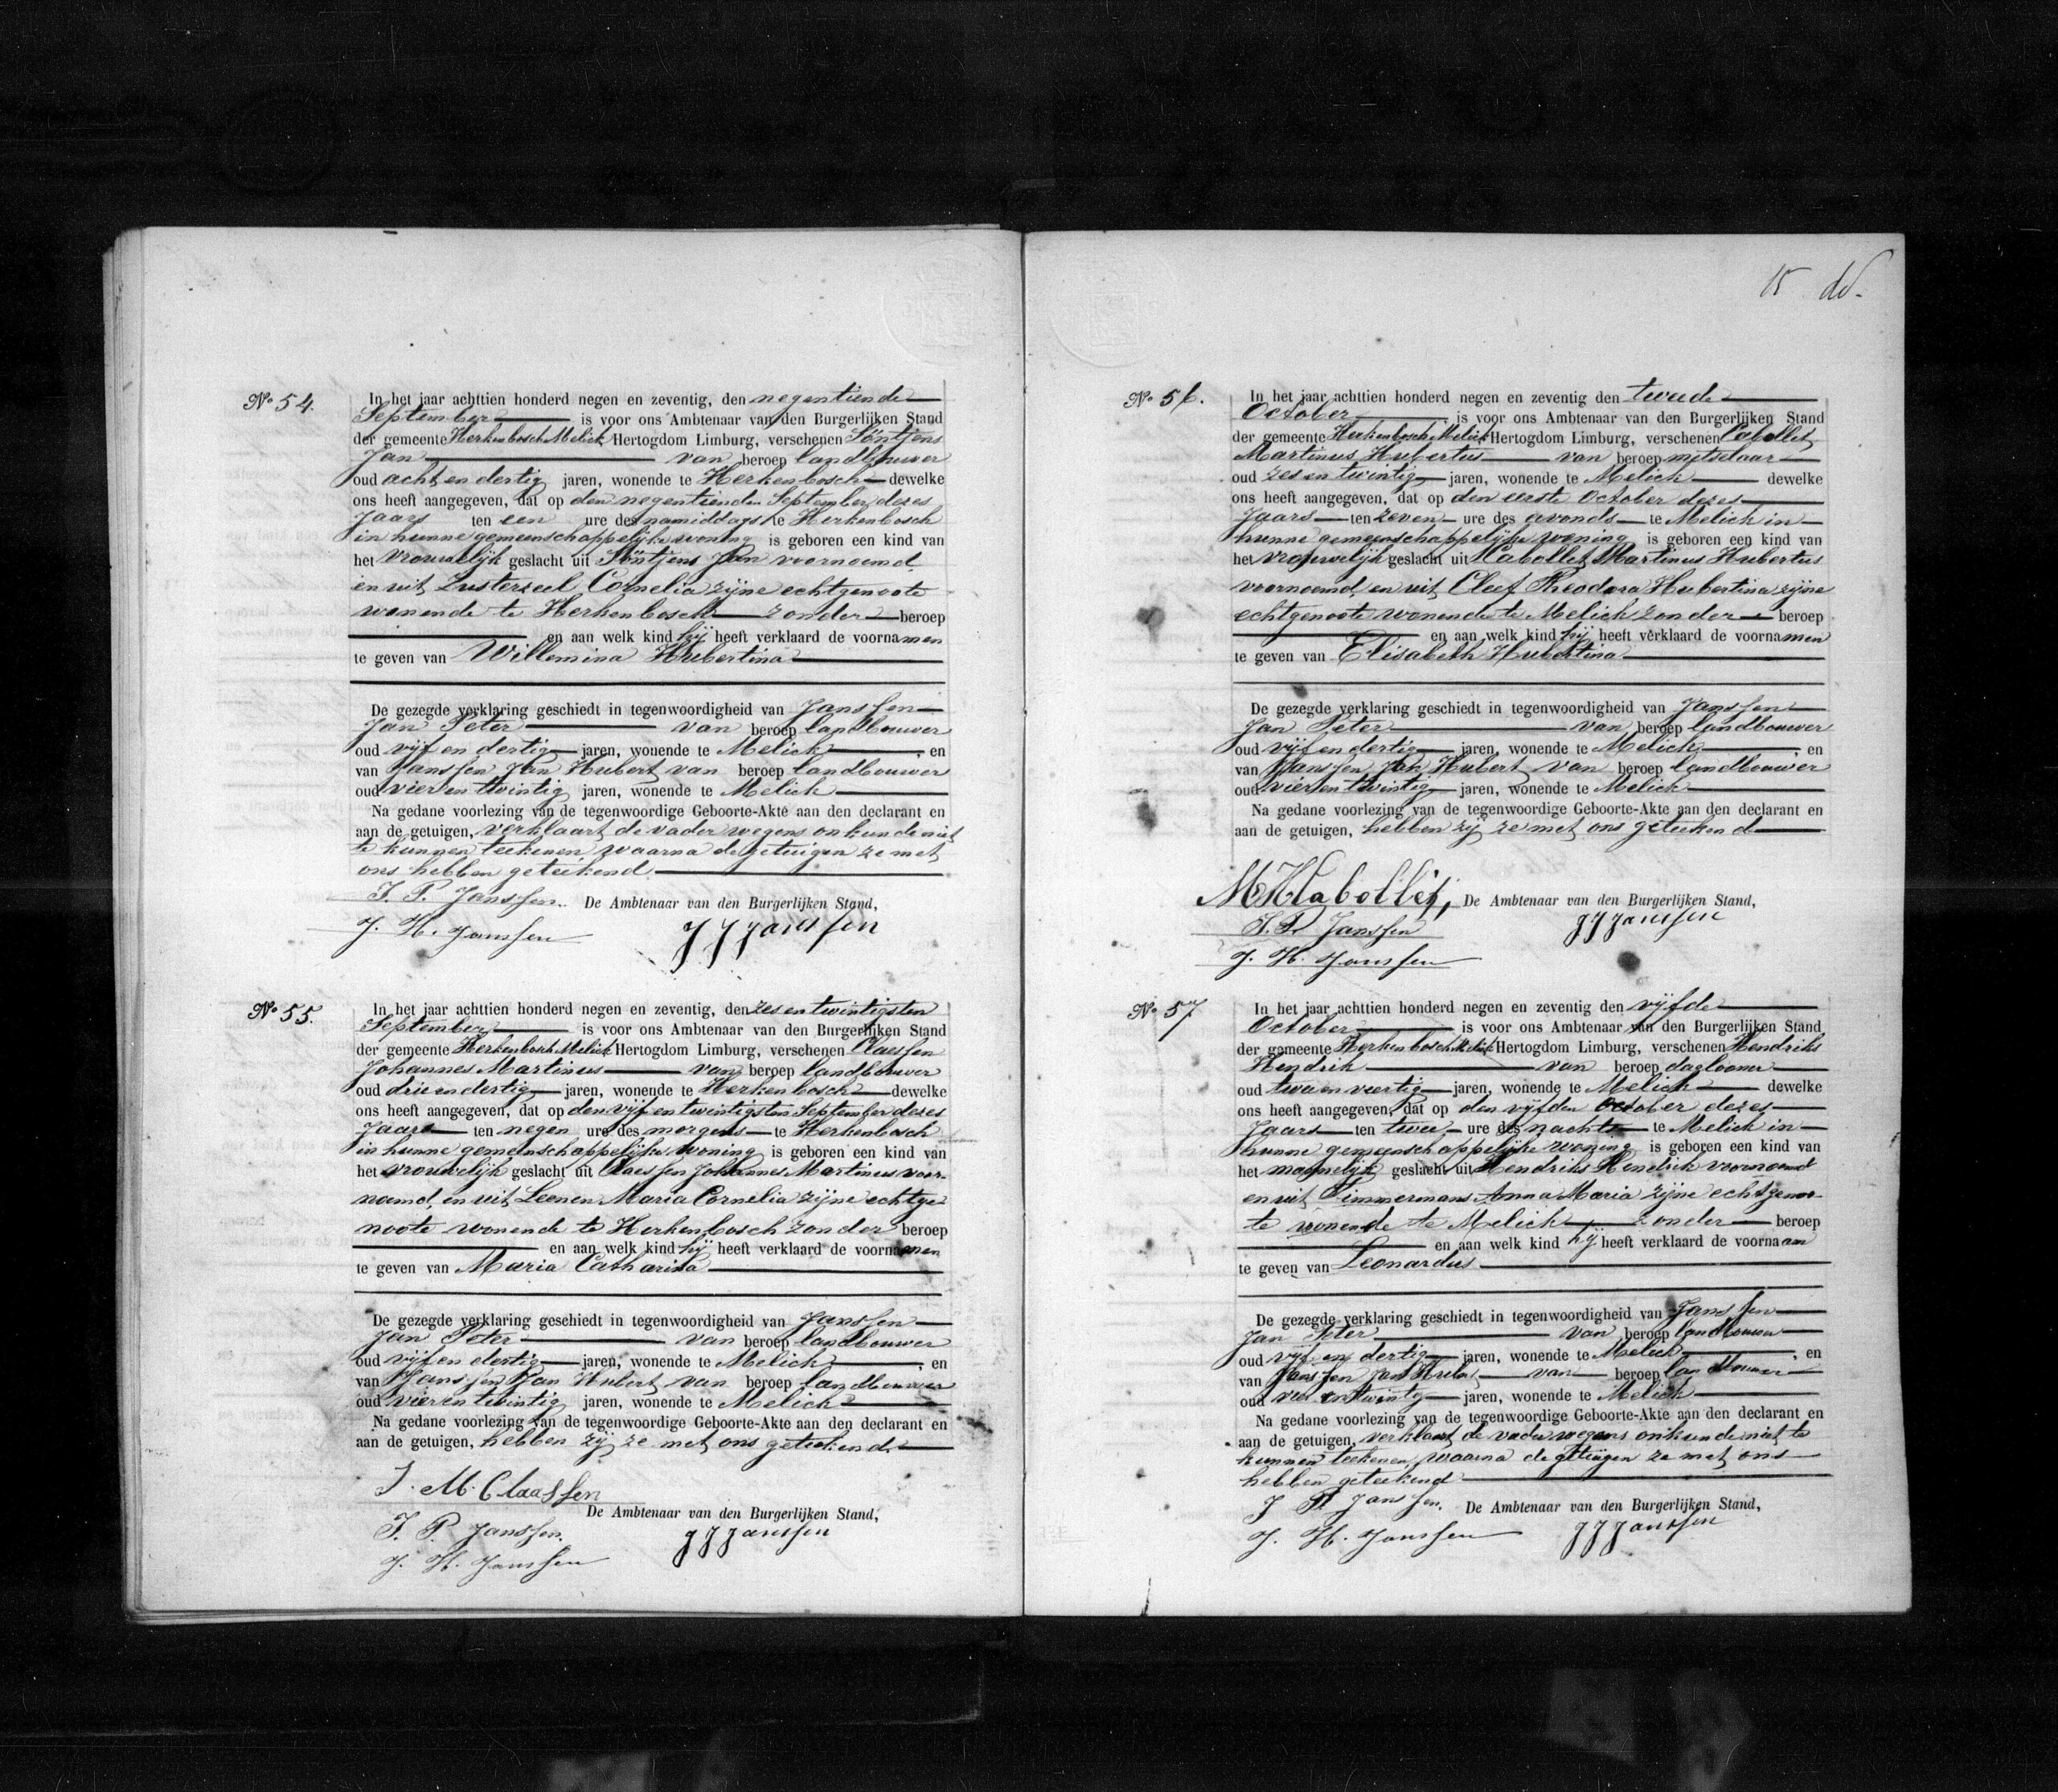 No 54.
In het jaar achttien honderd negen en zeventig, den negentiende
September is voor ons Ambtenaar van den Burgerlijken Stand
der gemeente Herkenbosch Melick Hertogdom Limburg, verschenen Söntjens
Jan van beroep landbouwer
oud acht en dertig jaren, wonende te Herkenbosch dewelke
ons heeft aangegeven, dat op den negentienden September dezes
Jaars ten een ure des namiddags te Herkenbosch
in hunne gemeenschappelijke woning is geboren een kind van
het vrouwelijk geslacht uit Söntjens Jan voornoemd
en uit Lusterzeel Cornelia zijne echtgenoote
wonende te Herkenbosch zonder beroep
en aan welk kind hij heeft verklaard de voornamen
te geven van Willemina Hubertina
De gezegde verklaring geschiedt in tegenwoordigheid van Janssen
Jan Peter van beroep landbouwer
oud vijf en dertig jaren, wonende te Melick, en
van Janssen Jan Hubert van beroep landbouwer
oud vier en twintig jaren, wonende te Melick
Na gedane voorlezing van de tegenwoordige Geboorte-Akte aan den declarant en
aan de getuigen, verklaart de vader wegens onkunde niet
te kunnen teekenen waarna de getuigen ze met
ons hebben geteekend
J. P. Janssen. De Ambtenaar van den Burgerlijken Stand,
J. H. Janssen JJJanssen
No 55.
In het jaar achttien honderd negen en zeventig, den zes en twintigsten
September is voor ons Ambtenaar van den Burgerlijken Stand
der gemeente Herkenbosch Melick Hertogdom Limburg, verschenen Claessen
Johannes Martinus van beroep landbouwer
oud drie en dertig jaren, wonende te Herkenbosch dewelke
ons heeft aangegeven, dat op den vijf en twintigsten September dezes
Jaars ten negen ure des morgens te Herkenbosch
in hunne gemeenschappelijke woning is geboren een kind van
het vrouwelijk geslacht uit Claessen Johannes Martinus voor-
noemd, en uit Leenen Maria Cornelia zijne echtge
noote wonende te Herkenbosch zonder beroep
en aan welk kind hij heeft verklaard de voornamen
te geven van Maria Catharina
De gezegde verklaring geschiedt in tegenwoordigheid van Janssen
Jan Peter van beroep landbouwer
oud vijf en dertig jaren, wonende te Melick, en
van Janssen Jan Hubert van beroep landbouwer
oud vier en twintig jaren, wonende te Melick
Na gedane voorlezing van de tegenwoordige Geboorte-Akte aan den declarant en
aan de getuigen, hebben zij ze met ons geteekend
J. M. Claassen
De Ambtenaar van den Burgerlijken Stand,
J. P. Janssen. JJJanssen
J. H. Janssen
15
No 56.
In het jaar achttien honderd negen en zeventig den tweede
October is voor ons Ambtenaar van den Burgerlijken Stand
der gemeente Herkenbosch Melick Hertogdom Limburg, verschenen Cabollet
Martinus Hubertus van beroep metselaar
oud zes en twintig jaren, wonende te Melick dewelke
ons heeft aangegeven, dat op den eerste October dezes
Jaars ten zeven ure des avonds te Melick in
hunne gemeenschappelijke woning is geboren een kind van
het vrouwelijk geslacht uit Kabollet Martinus Hubertus
voornoemd, en uit Cleef Theodora Hubertina zijne
echtgenoote wonende te Melick zonder beroep
en aan welk kind hij heeft verklaard de voornamen
te geven van Elisabeth Hubertina
De gezegde verklaring geschiedt in tegenwoordigheid van Janssen
Jan Peter van beroep landbouwer
oud vijf en dertig jaren, wonende te Melick, en
van Janssen Jan Hubert van beroep landbouwer
oud vier en twintig jaren, wonende te Melick
Na gedane voorlezing van de tegenwoordige Geboorte-Akte aan den declarant en
aan de getuigen, hebben zij ze met ons geteekend
MHKabollet, De Ambtenaar van den Burgerlijken Stand,
J. P. Janssen JJJanssen
J. H. Janssen
No 57
In het jaar achttien honderd negen en zeventig den vijfde
October is voor ons Ambtenaar van den Burgerlijken Stand
der gemeente Herkenbosch Melick Hertogdom Limburg, verschenen Hendriks
Hendrik van beroep daglooner
oud twee en veertig jaren, wonende te Melick dewelke
ons heeft aangegeven, dat op den vijfden October dezes
Jaars ten twee ure des nachts te Melick in
hunne gemeenschappelijke woning is geboren een kind van
het mannelijk geslacht uit Hendriks Hendrik voornoemd
en uit Timmermans Anna Maria zijne echtgenoo-
te wonende te Melick zonder beroep
en aan welk kind hij heeft verklaard de voornaam
te geven van Leonardus
De gezegde verklaring geschiedt in tegenwoordigheid van Janssen
Jan Peter van beroep landbouwer
oud vijf en dertig jaren, wonende te Melick, en
van Janssen Jan Hubert van beroep landbouwer
oud vier en twintig jaren, wonende te Melick
Na gedane voorlezing van de tegenwoordige Geboorte-Akte aan den declarant en
aan de getuigen, verklaart de vader wegens onkunde niet te
kunnen teekenen, waarna de getuigen ze met ons
hebben geteekend
J P. Janssen. De Ambtenaar van den Burgerlijken Stand,
J. H. Janssen JJJanssen